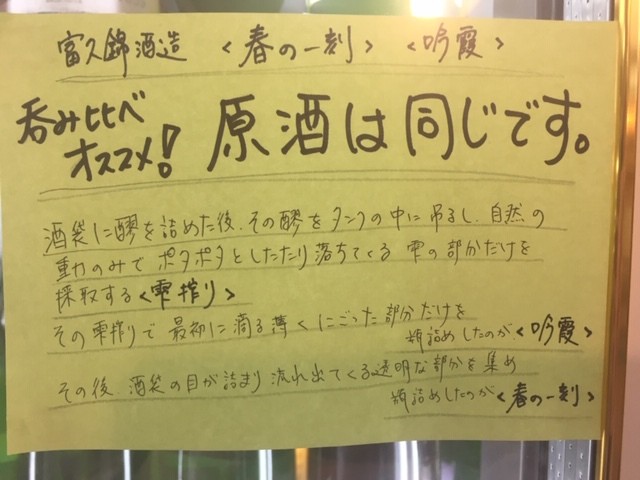 富久錦酒造 <春の一刻> <吟霞>
呑み比べ
オススメ!
原酒は同じです。
酒袋に醪を詰めた後、その醪をタンクの中に吊るし、自然の
重力のみでポタポタとしたたり落ちてくる 雫の部分だけを
採取する<雫搾り>
その雫搾りで 最初に滴る薄くにごった部分だけを
瓶詰めしたのが、<吟霞>
その後、酒袋の目が詰まり 流れ出てくる透明な部分を集め
瓶詰めしたのが <春の一刻>